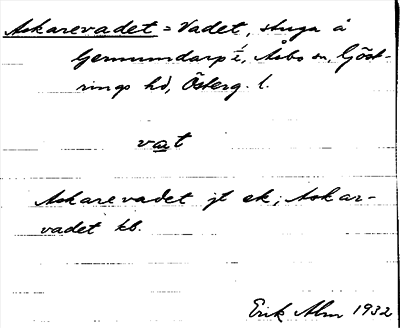 Askarevadet = Vadet, stuga å
Germundarp 1/2, Åsbo sn, Göst-
rings hd, Österg. l.
vat
Askarevadet jt ek; Askar-
vadet kb.
Erik Alm 1932